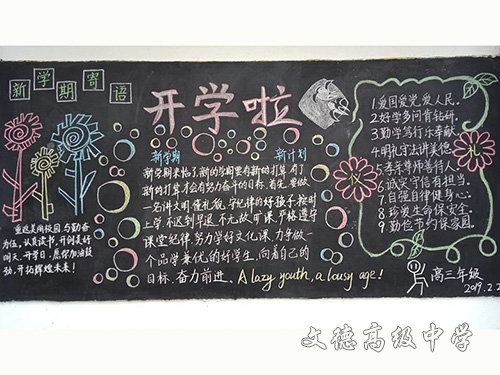 新学期寄语
开学啦
重返美丽校园,与勤奋
为伍,认真读书,开创美好
明天,开学日,愿你加油鼓
劲,开拓辉煌未来!
新学期 新计划
新学期来临了,新的学期要有新的打算,有了
新的打算才会有努力奋斗的目标。首先,要做
一名讲文明,懂礼貌,守纪律的好孩子,按时
上学,不迟到早退,不无故旷课,严格遵守
课堂纪律,努力学好文化课,力争做一
个品学兼优的好学生,向着自己的
目标,奋力前进。A lazy youth, a lousy age!
礼仪
1.爱国爱党爱人民。
2.好学多问肯钻研。
3.勤学笃行乐奉献。
4.明礼守法讲美德。
5.孝亲尊师善待人。
6.诚实守信有担当。
7.自强自律健身心。
8.珍爱生命保安全。
9.勤俭节约保家园。
高三年级
2019.2.2
文德高级中学